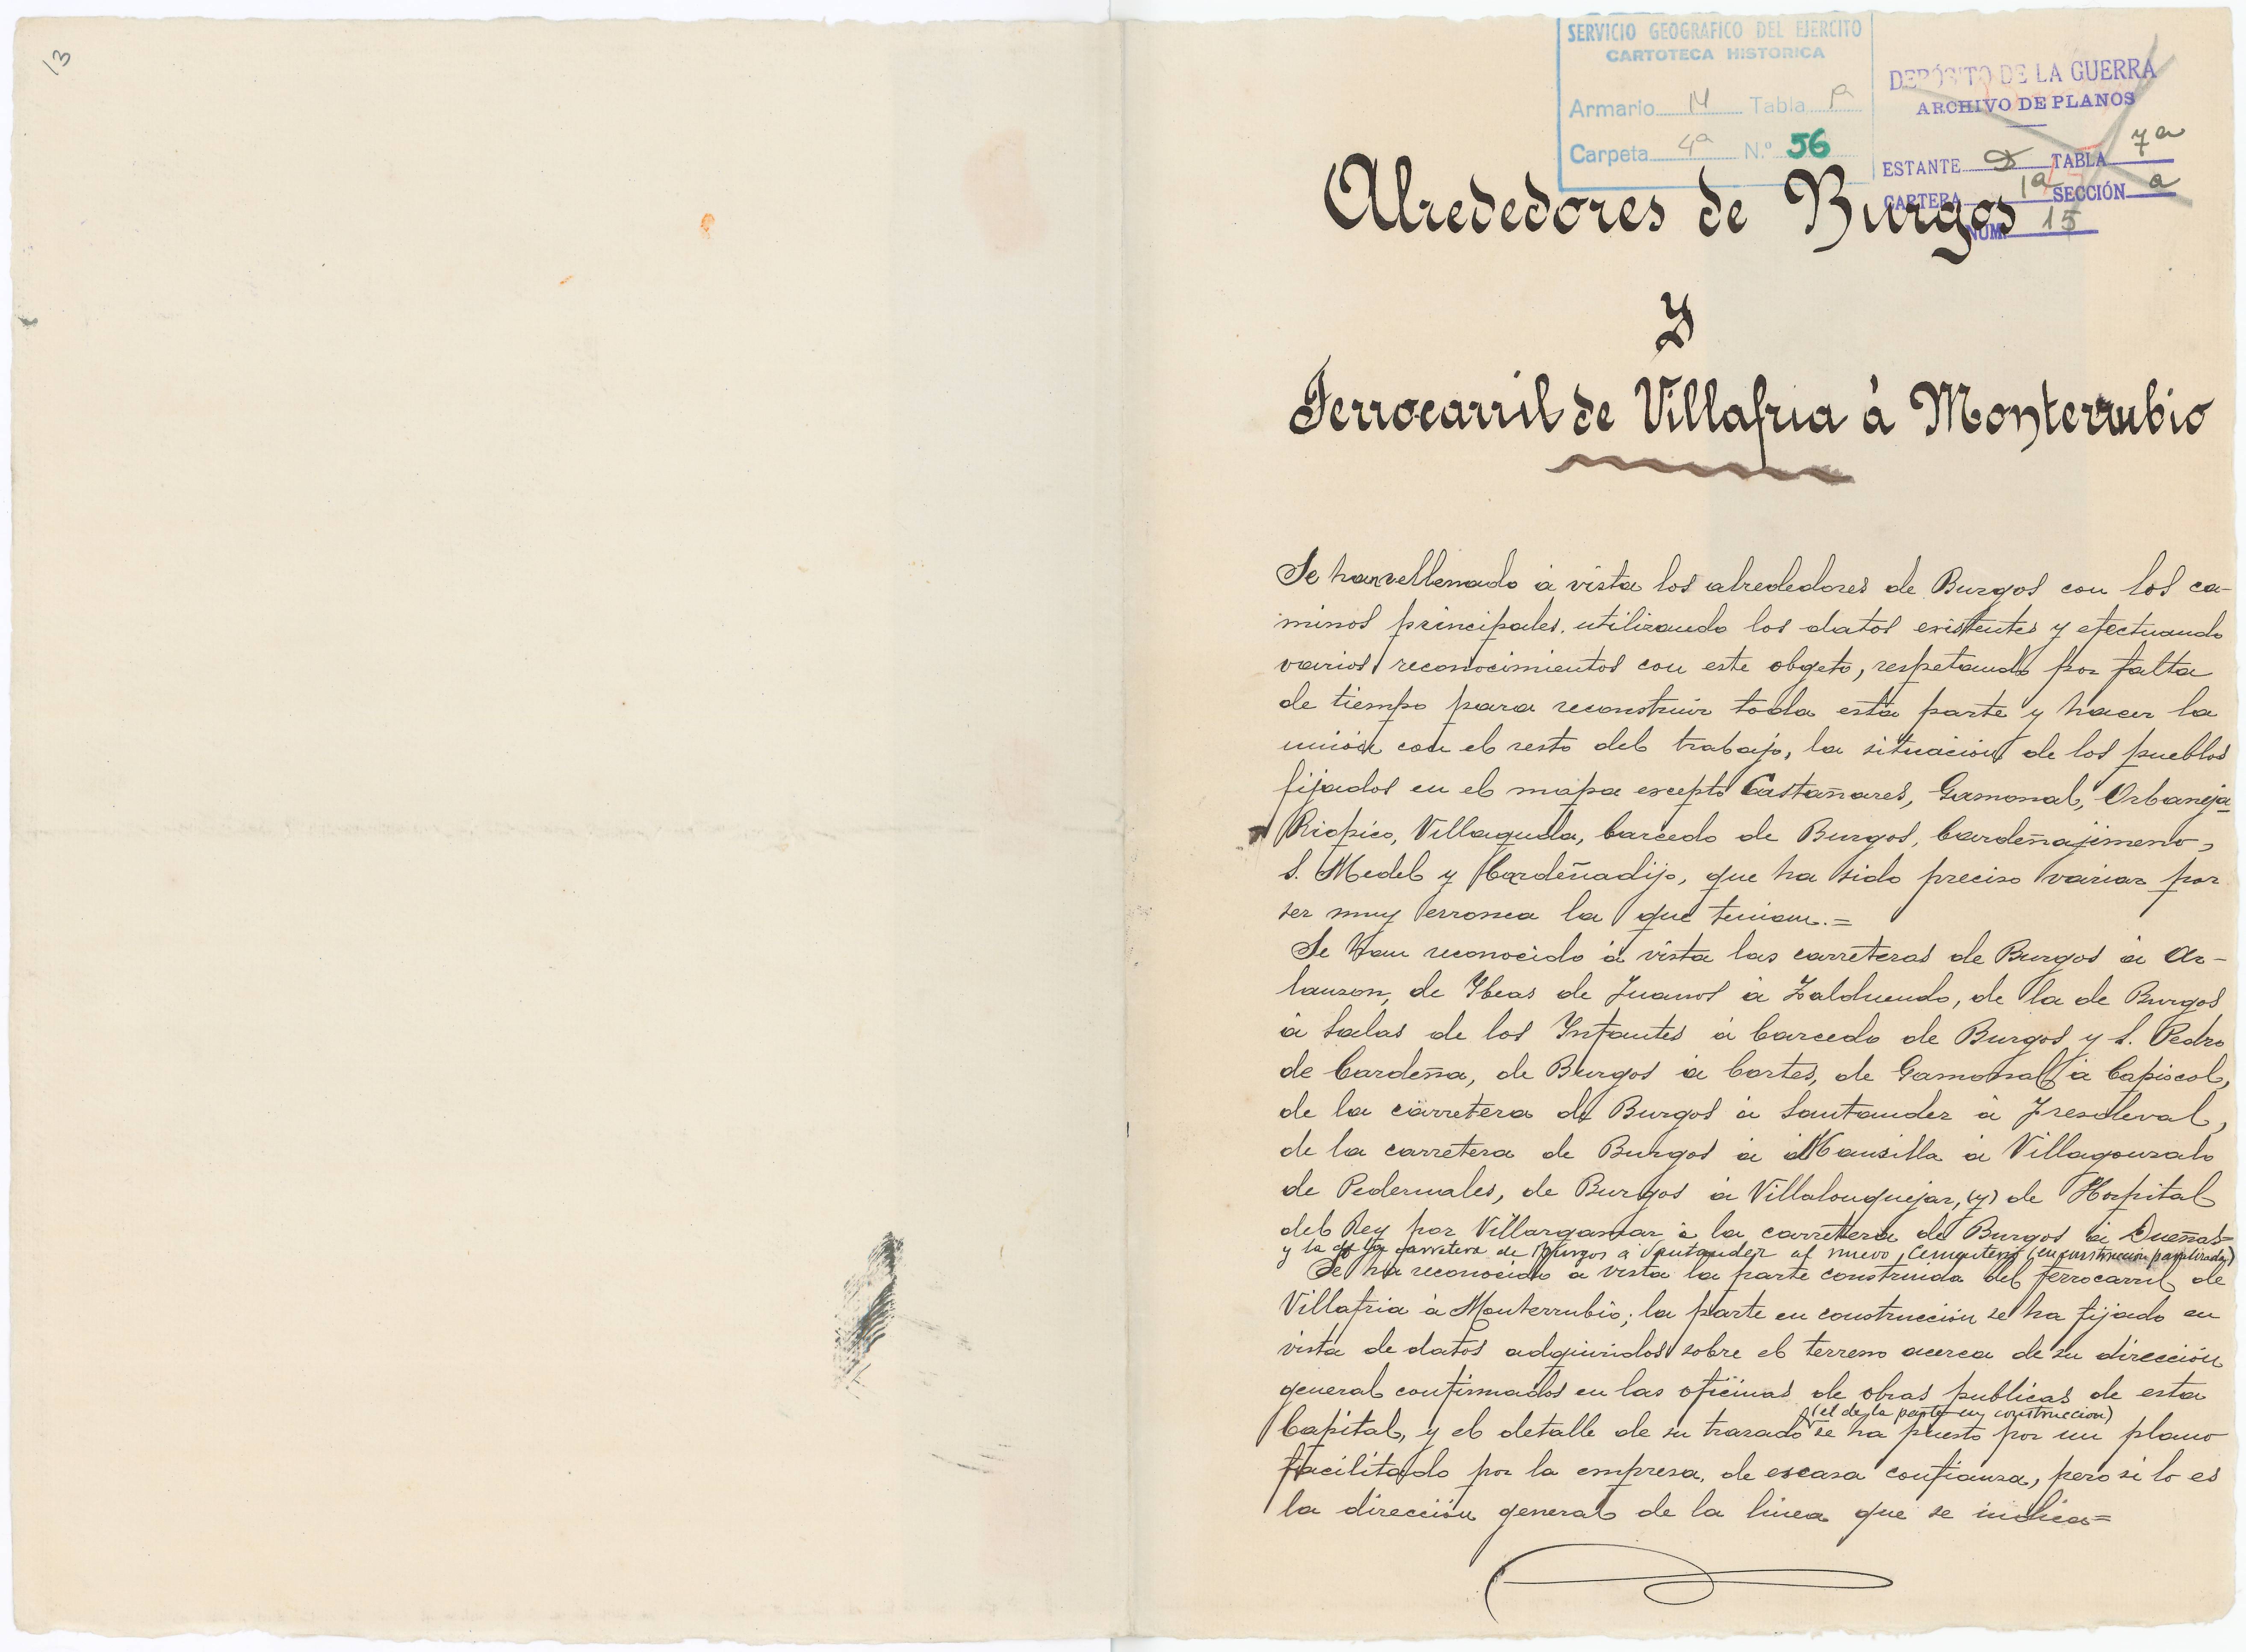 13
SERVICIO GEOGRAFICO DEL EJERCITO
CARTOTECA HISTORICA
Armario M Tabla
Carpeta 4ª N.º 56
DEPÓSITO DE LA GUERRA
ARCHIVO DE PLANOS
ESTANTE TABLA 7ª
CARTERA 1ª SECCIÓN a
NÚM. 15
Alrededores de Burgos
y
Ferrocarril de Villafria à Monterrubio
Se han rellenado à vista los alrededores de Burgos con los ca-
minos principales, utilizando los datos existentes y efectuando
varios reconocimientos con este obgeto, respetando por falta
de tiempo para reconstruir toda esta parte y hacer la
unión con el resto del trabajo, la situación de los pueblos
fijados en el mapa excepto Castañares, Gamonal, Orbaneja-
Riopico, Villaguda, Carcedo de Burgos, Cardeñajimeno,
S. Medel y Cardeñadijo, que ha sido preciso variar por
ser muy erronea la que tenian.=
Se han reconocido à vista las carreteras de Burgos à Ar-
lanzon, de Ybeas de Juarros à Zalduendo, de la de Burgos
à Salas de los Ynfantes à Carcedo de Burgos y S. Pedro
de Cardeña, de Burgos à Cortes, de Gamonal à Capiscol,
de la carretera de Burgos à Santander à Fresdeval,
de la carretera de Burgos à Mansilla à Villagonzalo
de Pedernales, de Burgos à Villalonquejar, (y) de Hospital
del Rey por Villargamar à la carretera de Burgos à Dueñas=
y la de la carretera de Burgos a Santander al nuevo Cementerio (en construccion paralizada)
Se ha reconocido a vista la parte construida del ferrocarril de
Villafria à Monterrubio; la parte en construcción se ha fijado en
vista de datos adquiridos sobre el terreno acerca de su dirección
general confirmados en las oficinas de obras publicas de esta
(el de la parte en construccion)
Capital, y el detalle de su trazado se ha puesto por un plano
facilitado por la empresa, de escasa confianza, pero si lo es
la dirección general de la linea que se indica=